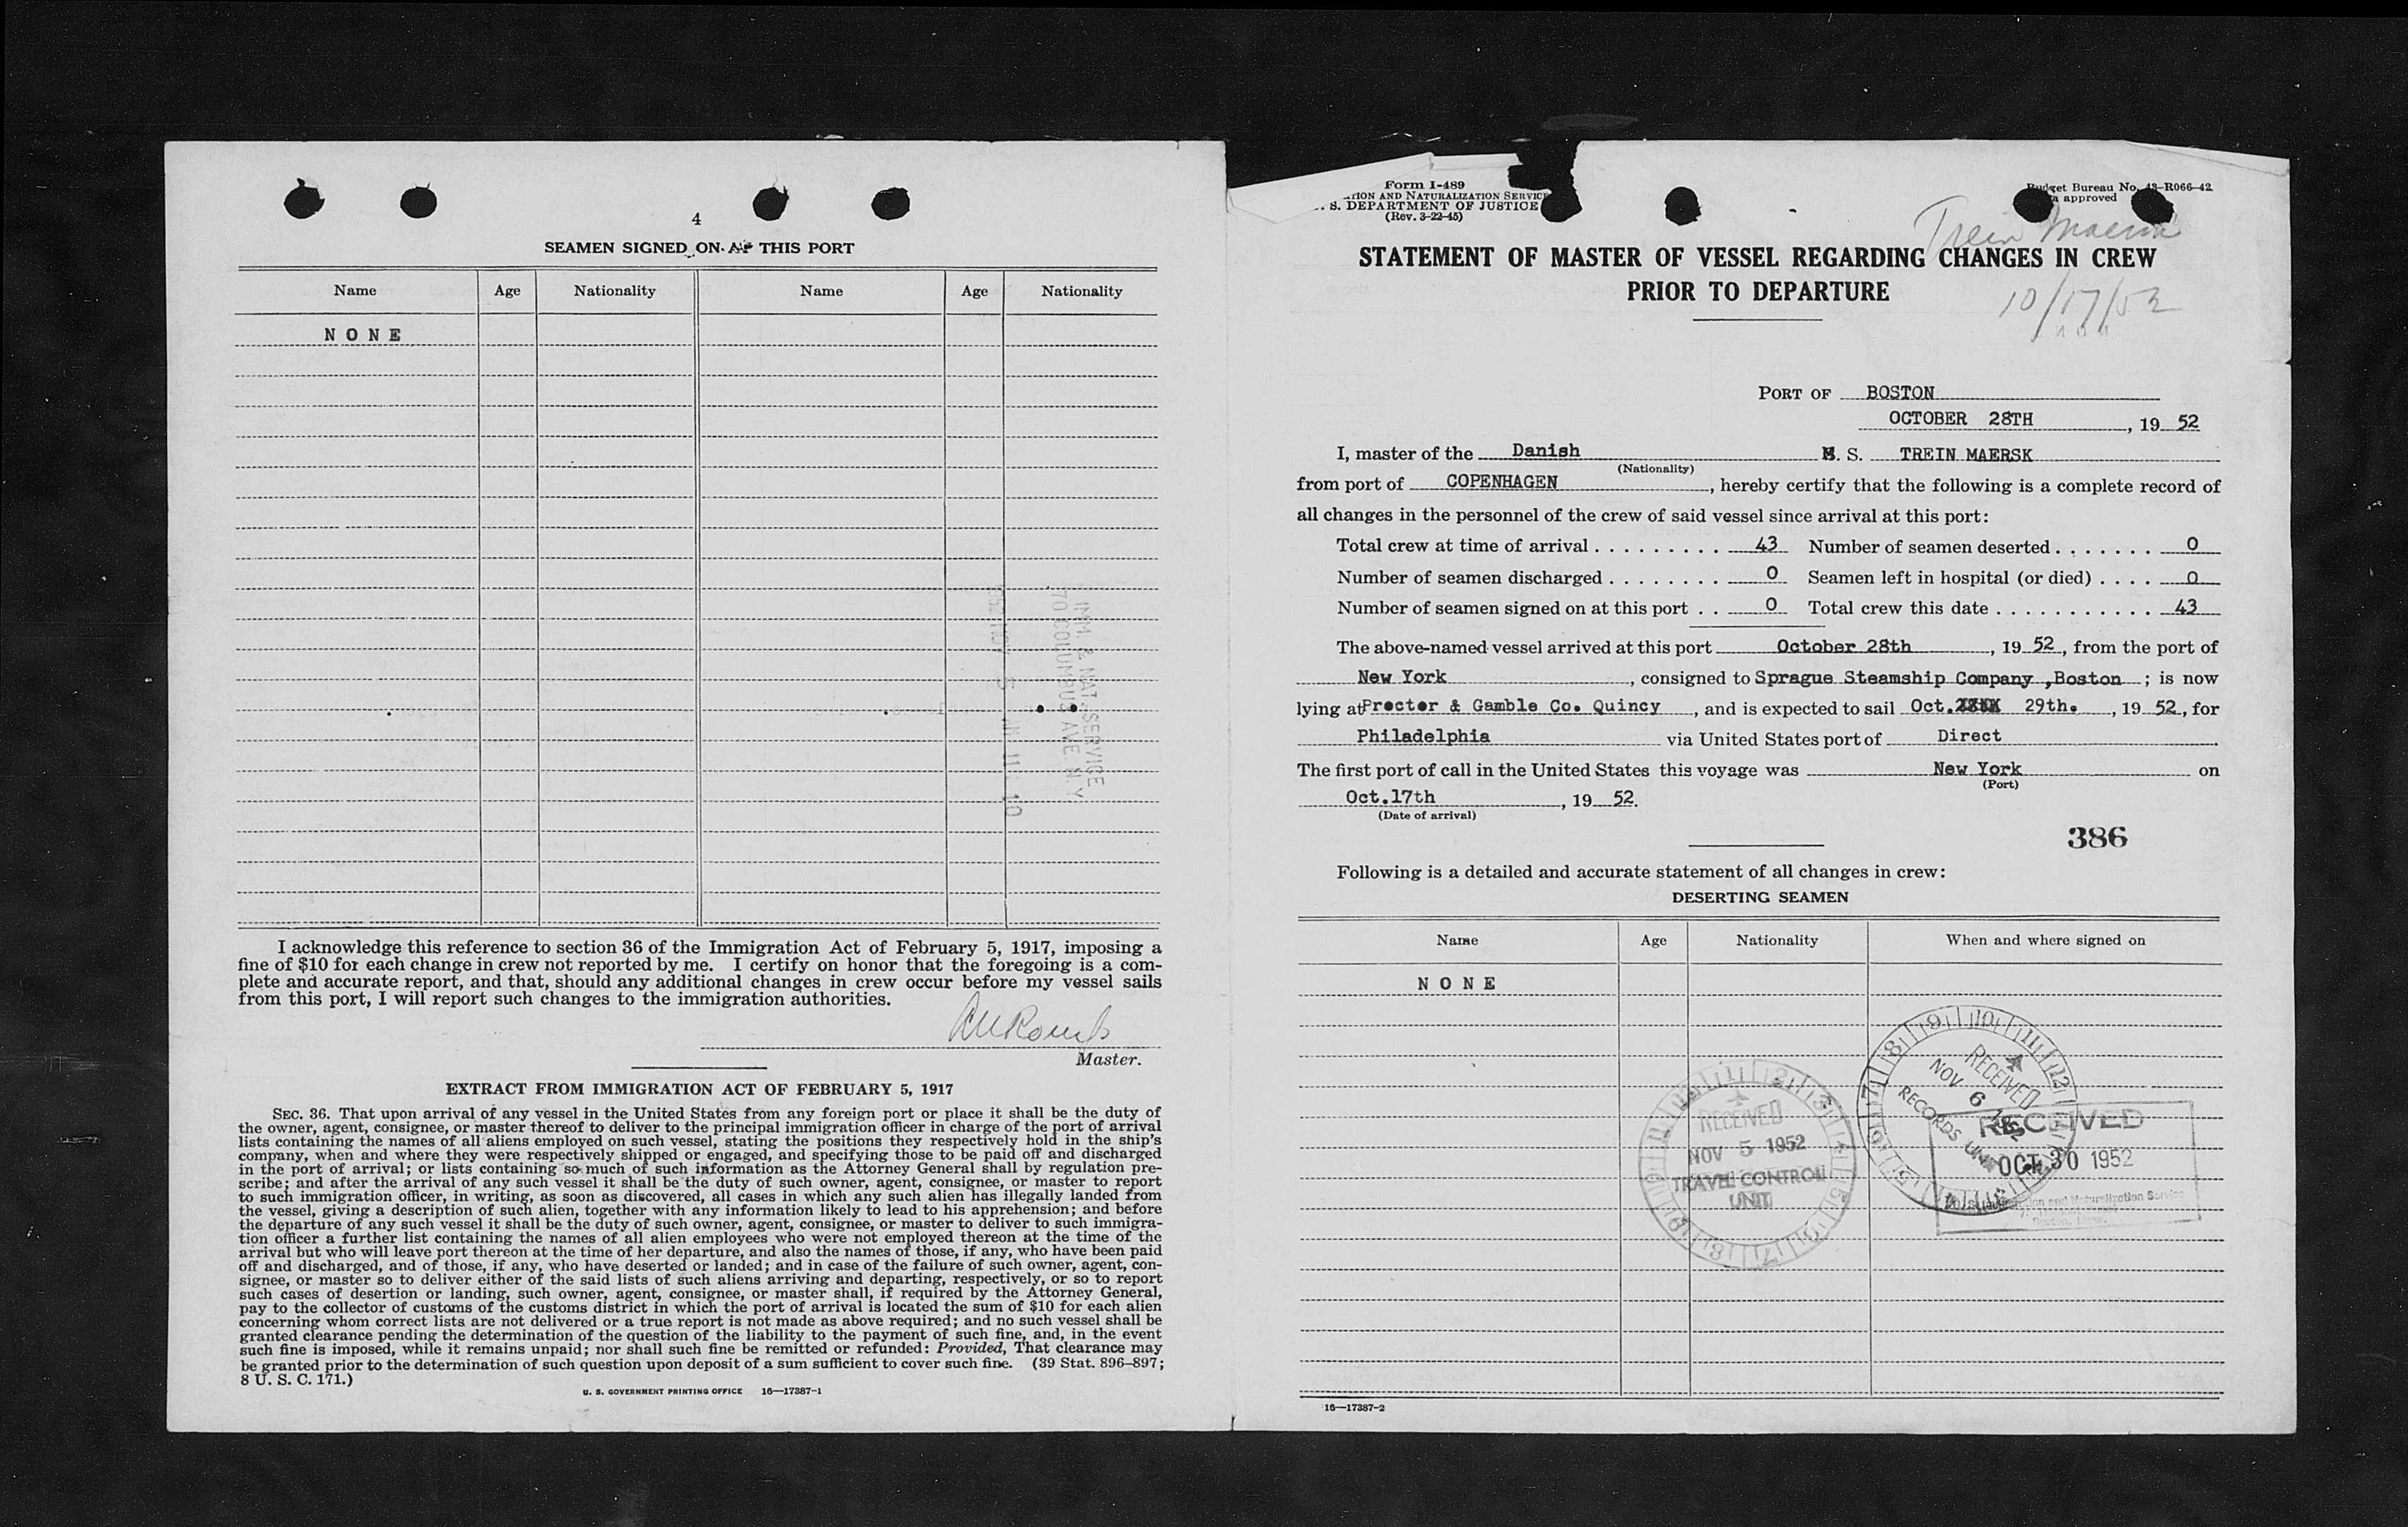 4
SEAMEN SIGNED ON AT THIS PORT
Name Age Nationality Name Age Nationality
NONE
IMM. & NAT. SERVICE
70 COLUMBUS AVE N.Y.
I acknowledge this reference to section 36 of the Immigration Act of February 5, 1917, imposing a
fine of $10 for each change in crew not reported by me. I certify on honor that the foregoing is a com-
plete and accurate report, and that, should any additional changes in crew occur before my vessel sails
from this port, I will report such changes to the immigration authorities.
Master.
EXTRACT FROM IMMIGRATION ACT OF FEBRUARY 5, 1917
SEC. 36. That upon arrival of any vessel in the United States from any foreign port or place it shall be the duty of
the owner, agent, consignee, or master thereof to deliver to the principal immigration officer in charge of the port of arrival
lists containing the names of all aliens employed on such vessel, stating the positions they respectively hold in the ship's
company, when and where they were respectively shipped or engaged, and specifying those to be paid off and discharged
in the port of arrival; or lists containing so much of such information as the Attorney General shall by regulation pre-
scribe; and after the arrival of any such vessel it shall be the duty of such owner, agent, consignee, or master to report
to such immigration officer, in writing, as soon as discovered, all cases in which any such alien has illegally landed from
the vessel, giving a description of such alien, together with any information likely to lead to his apprehension; and before
the departure of any such vessel it shall be the duty of such owner, agent, consignee, or master to deliver to such immigra-
tion officer a further list containing the names of all alien employees who were not employed thereon at the time of the
arrival but who will leave port thereon at the time of her departure, and also the names of those, if any, who have been paid
off and discharged, and of those, if any, who have deserted or landed; and in case of the failure of such owner, agent, con-
signee, or master so to deliver either of the said lists of such aliens arriving and departing, respectively, or so to report
such cases of desertion or landing, such owner, agent, consignee, or master shall, if required by the Attorney General,
pay to the collector of customs of the customs district in which the port of arrival is located the sum of $10 for each alien
concerning whom correct lists are not delivered or a true report is not made as above required; and no such vessel shall be
granted clearance pending the determination of the question of the liability to the payment of such fine, and, in the event
such fine is imposed, while it remains unpaid; nor shall such fine be remitted or refunded: Provided, That clearance may
be granted prior to the determination of such question upon deposit of a sum sufficient to cover such fine. (39 Stat. 896–897;
8 U. S. C. 171.)
U. S. GOVERNMENT PRINTING OFFICE 16—17387-1
Form I-489
TION AND NATURALIZATION SERVICE
. S. DEPARTMENT OF JUSTICE
(Rev. 3-22-45)
Budget Bureau No. 43-R066-42
approved
Trein Maersk
STATEMENT OF MASTER OF VESSEL REGARDING CHANGES IN CREW
PRIOR TO DEPARTURE
10/17/52
PORT OF BOSTON
OCTOBER 28TH, 19 52
I, master of the Danish M. S. TREIN MAERSK
(Nationality)
from port of COPENHAGEN, hereby certify that the following is a complete record of
all changes in the personnel of the crew of said vessel since arrival at this port:
Total crew at time of arrival . . . . . . . . . 43 Number of seamen deserted . . . . . . . 0
Number of seamen discharged . . . . . . . . 0 Seamen left in hospital (or died) . . . . 0
Number of seamen signed on at this port . . 0 Total crew this date . . . . . . . . . . . 43
The above-named vessel arrived at this port October 28th, 19 52, from the port of
New York, consigned to Sprague Steamship Company ,Boston ; is now
lying at Procter & Gamble Co. Quincy, and is expected to sail Oct. 29th., 19 52, for
Philadelphia via United States port of Direct
The first port of call in the United States this voyage was New York on
(Port)
Oct.17th, 19 52.
(Date of arrival)
386
Following is a detailed and accurate statement of all changes in crew:
DESERTING SEAMEN
Name Age Nationality When and where signed on
NONE
RECEIVED
NOV 6 1952
RECORDS UNIT
RECEIVED
NOV 5 1952
TRAVEL CONTROL
UNIT
RECEIVED
OCT 30 1952
Naturalization Service
16—17387-2